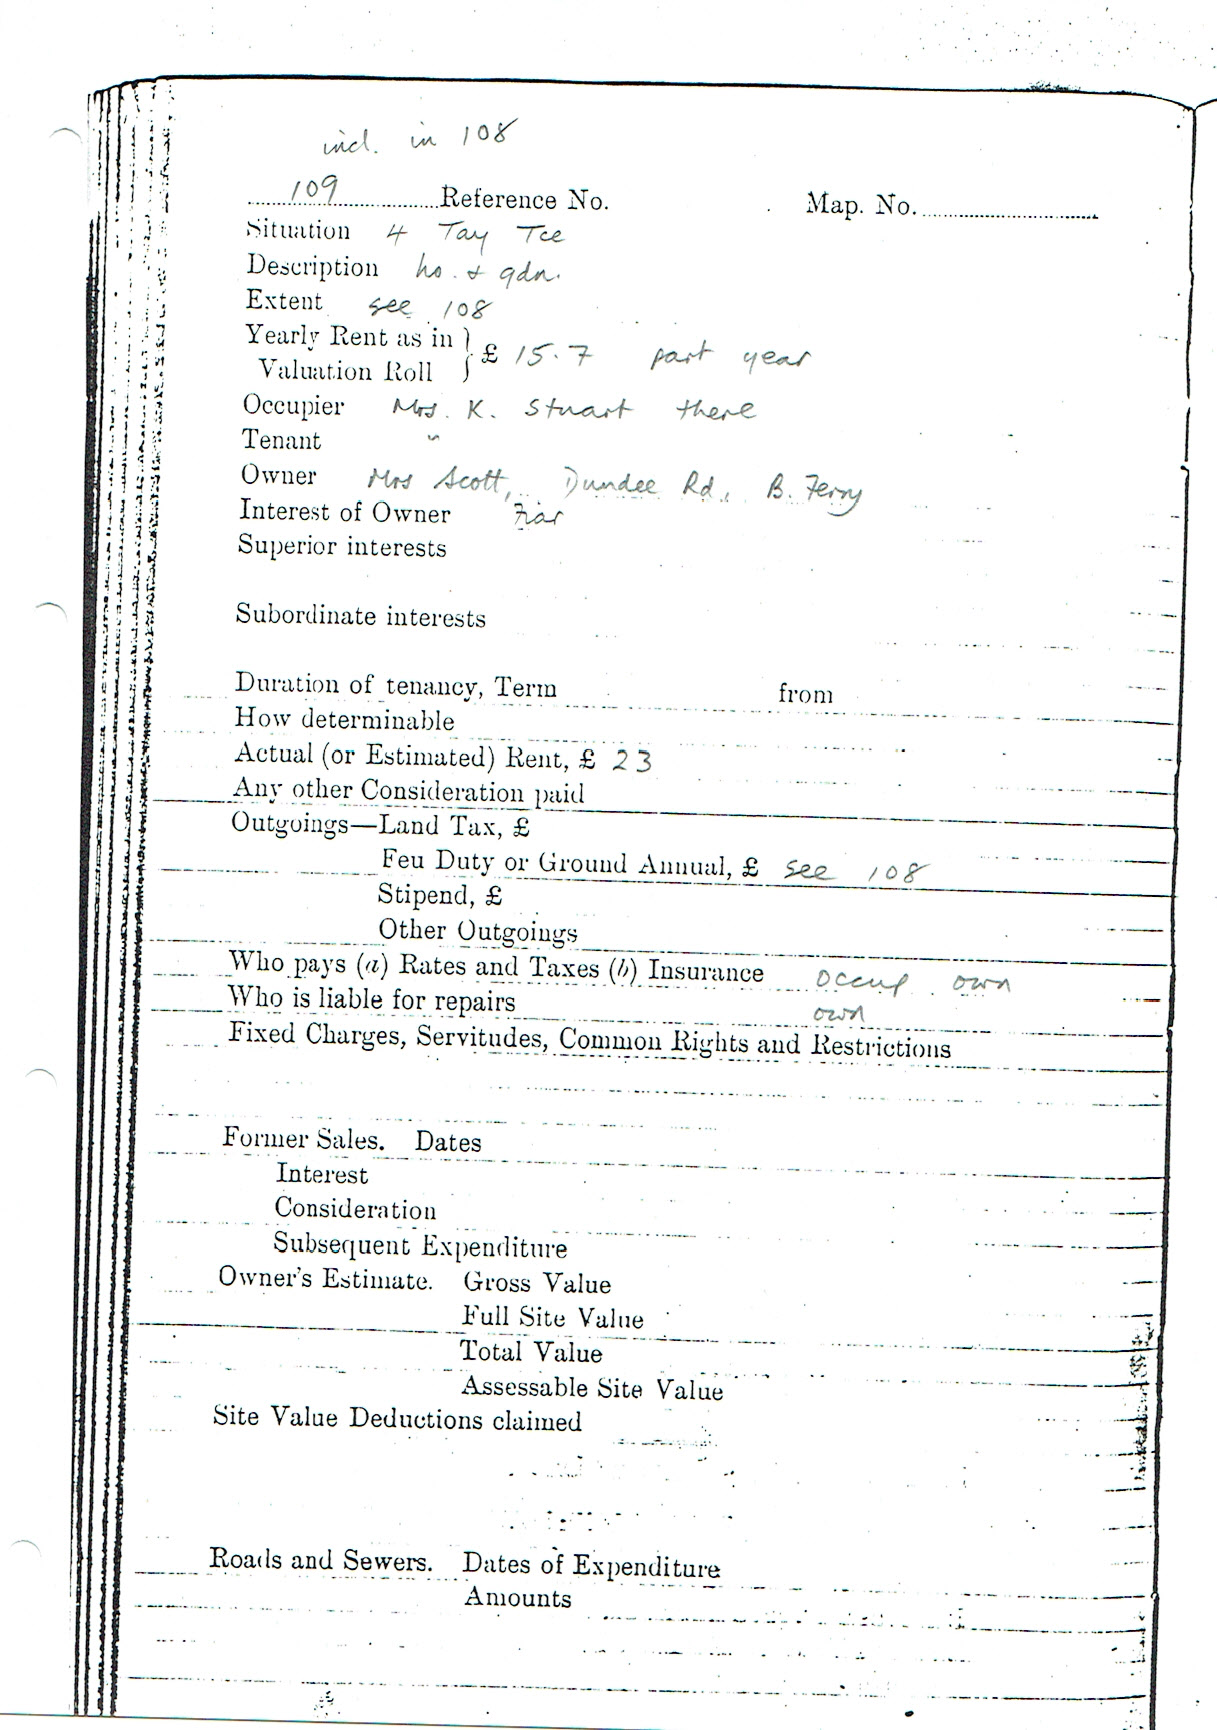 incl. in 108
109 Reference No. Map. No.
Situation 4 Tay Tce
Description ho. & gdn.
Extent see 108
Yearly Rent as in } £ 15.7 part year
Valuation Roll
Occupier Mrs. K. Stuart there
Tenant "
Owner Mrs Scott, Dundee Rd, B. Ferry
Interest of Owner Fiar
Superior interests
Subordinate interests
Duration of tenancy, Term from
How determinable
Actual (or Estimated) Rent, £ 23
Any other Consideration paid
Outgoings—Land Tax, £
Feu Duty or Ground Annual, £ see 108
Stipend, £
Other Outgoings
Who pays (a) Rates and Taxes (b) Insurance occup own
Who is liable for repairs own
Fixed Charges, Servitudes, Common Rights and Restrictions
Former Sales. Dates
Interest
Consideration
Subsequent Expenditure
Owner's Estimate. Gross Value
Full Site Value
Total Value
Assessable Site Value
Site Value Deductions claimed
Roads and Sewers. Dates of Expenditure
Amounts